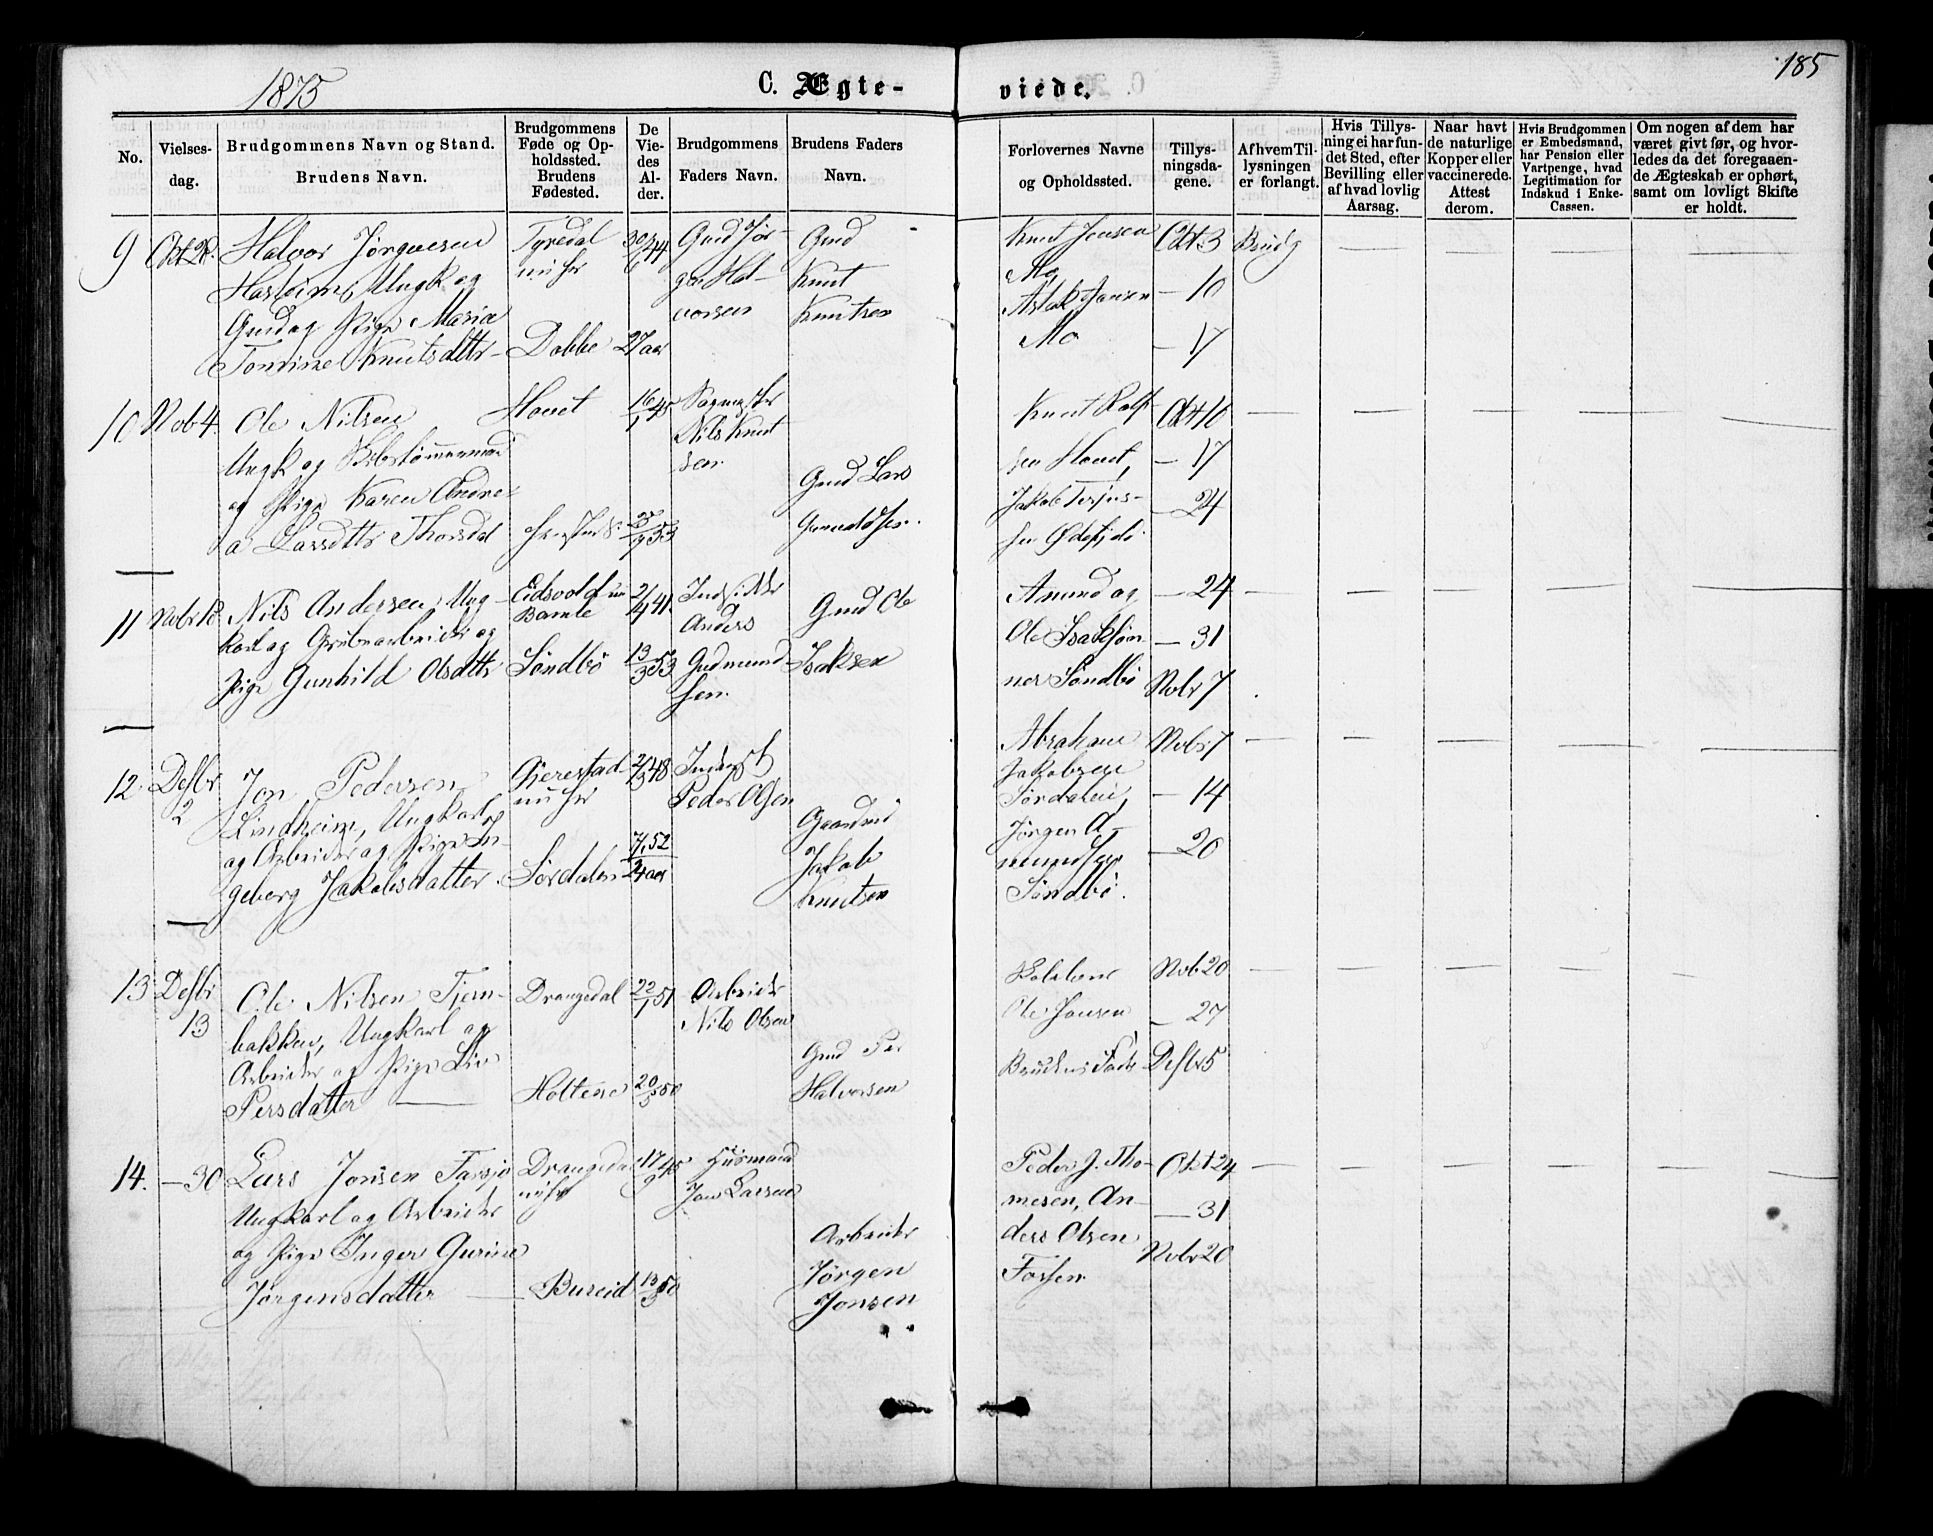 1875
C. Ægte-
viede.
185
No.
Vielses-
dag.
Brudgommens Navn og Stand.
Brudens Navn.
Brudgommens
Føde og Op-
holdssted.
Brudens
Fødested.
De
Vie-
des
Al-
der.
Brudgommens
Faders Navn.
Brudens Faders
Navn.
Forlovernes Navne
og Opholdssted.
Tillys-
ningsda-
gene.
Af hvem Til-
lysningen
er forlangt.
Hvis Tillys-
ning ei har fun-
det Sted, efter
Bevilling eller
af hvad lovlig
Aarsag.
Naar havt
de naturlige
Kopper eller
vaccinerede.
Attest
derom.
Hvis Brudgommen
er Embedsmand,
har Pension eller
Vartpenge, hvad
Legitimation for
Indskud i Enke-
Cassen.
Om nogen af dem har
været givt før, og hvor-
ledes da det foregaaen-
de Ægteskab er ophørt,
samt om lovligt Skifte
er holdt.
9
Halvor Jørgensen
Ungk og
Pige Maria
Knutsdttr
Dobbe
27 aar
Gmd Jør-
gen Hal-
vorsen
Gmd
Knut
Knutsen
Knut Jensen
Mo
Aslak Jensen
Mo
Okt 3
— 10
— 17
Brudg
10
Nob 4.
Ole Nilsen
Ungk og
og Pige Karen Andre-
a Larsdttr Thorsdal
Hovet
16/1 45
Nils Knut
sen
Gmd Lars
Knut Rolf-
sen Hovet,
Jakob Terjus-
sen
Okt 10
— 17
— 24
11
Nobr 18
Nils Andersen, Ung-
karl og Grubearbeider og
Pige Gunhild Olsdttr
Eidsvold
Bamle
Søndbö
13/3 53
Anders
Gudmund-
sen.
Gmd Ole
Isaksen
Amund og
Ole Isaksøn-
ner Søndbö
— 24
— 31
Nobr 7
12.
Desbr
2
Jon Pedersen
Lindheim, Ungkarl
og Arbeider og Pige In-
geborg Jakobsdatter.
Gjerestad
nu her
Sørdalen
Peder Olsen
Gaardmd
Jakob
Knutsen
Abraham
Jakobsen
Sørdalen,
Jørgen A-
mundsen
Søndbö.
Nobr 7
— 14
— 20
13
Desbr
13
Ole Nilsen Tjern-
bakken, Ungkarl og
Arbeider og Pige Liv
Persdatter
Drangedal
22/1 51
Holtene
20/5 50
Arbeider
Nils Olsen
Gmd Per
Halvorsen
Ole Jansen
Brudens Fader
Nob 20
— 27
Desbr 5
14.
— 30
Lars Jonsen Farsjø
Ungkarl og Arbeider
og Pige Inger Gurine
Jørgensdatter
Drangedal
nu her
17/9 45
Bureid
Husmand
Jon Larsen
Arbeider
Jørgen
Jonsen
Peder J. Tho-
mesen, An-
ders Olsen
Fossen
Okt 24
— 31
Nobr 20